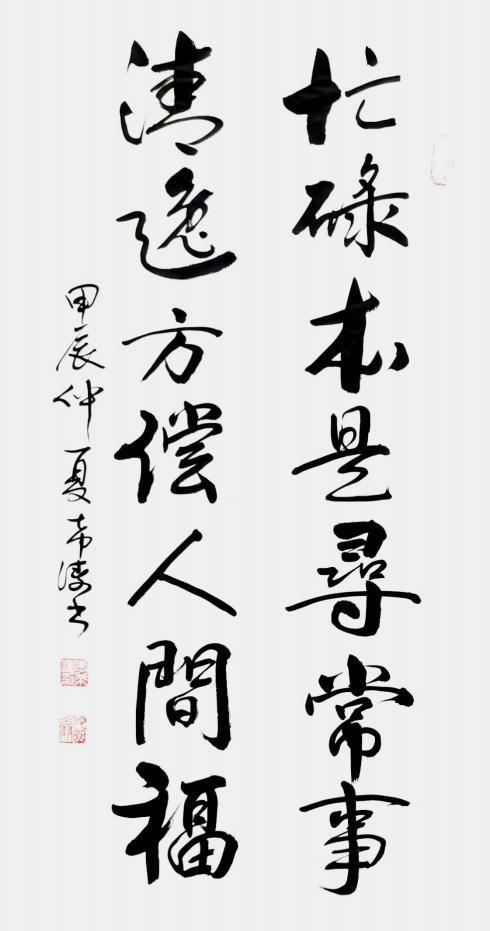 忙碌本是尋常事
清逸方偿人間福
甲辰仲夏希涛书